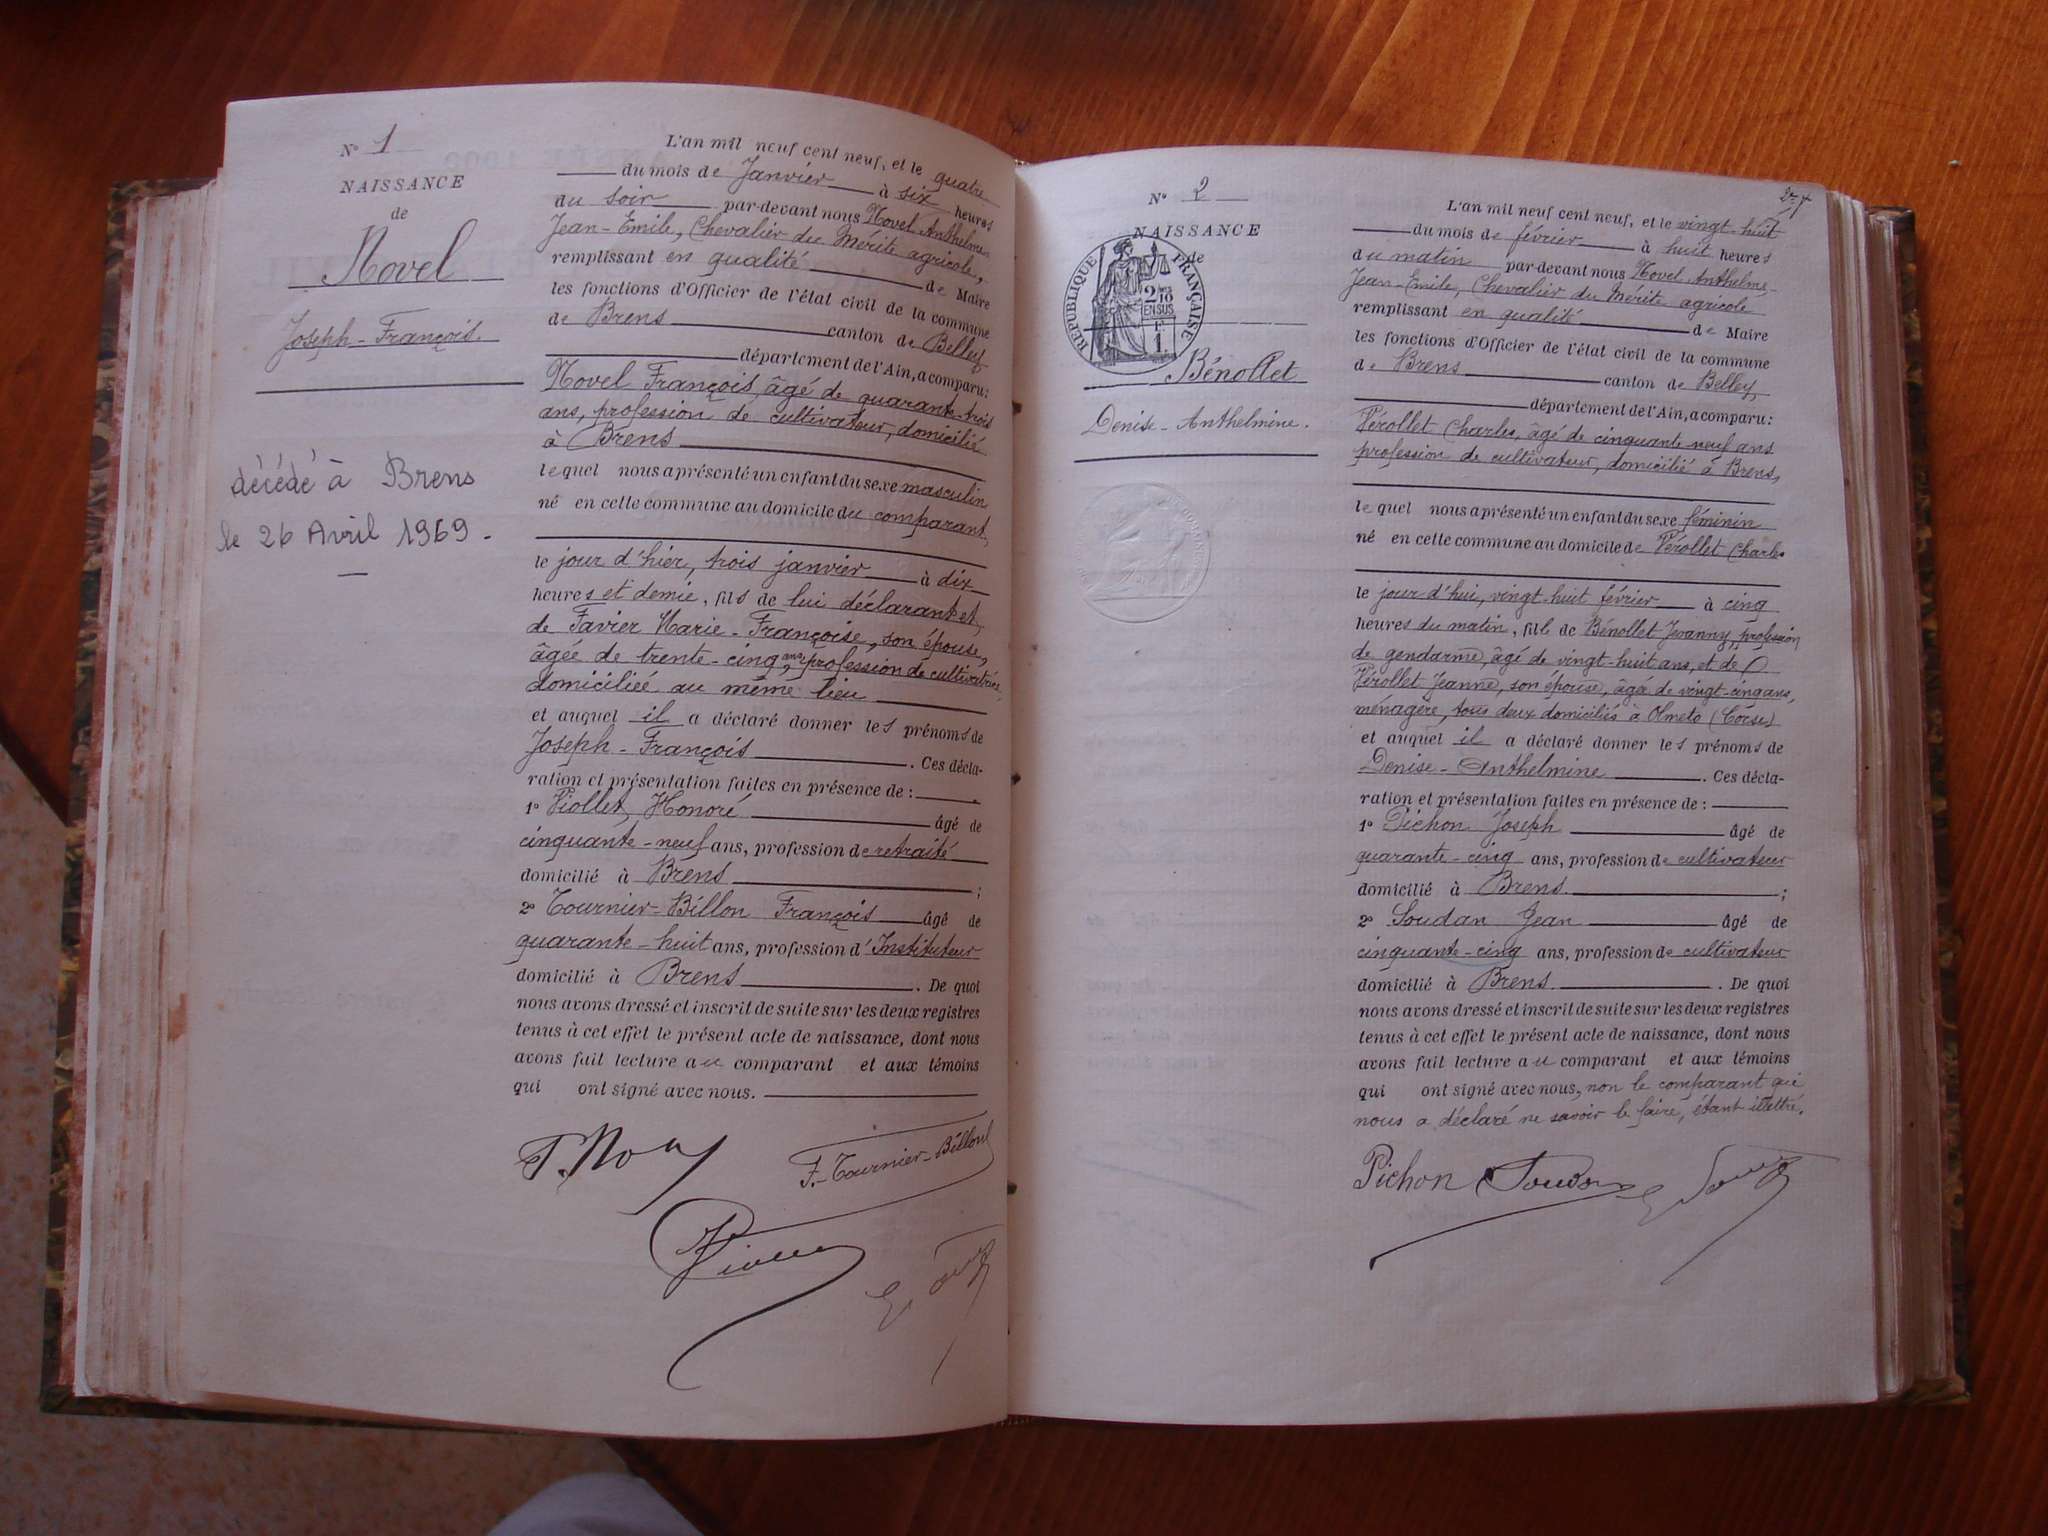 N° 1
NAISSANCE
de
Novel
Joseph-François.
décédé à Brens
le 26 Avril 1969.
L'an mil neuf cent neuf, et le quatre
du mois de Janvier à six heures
du soir par-devant nous Novel Anthelme
Jean-Emile, Chevalier du Mérite agricole,
remplissant en qualité de Maire
les fonctions d'Officier de l'état civil de la commune
de Brens canton de Belley
département de l'Ain, a comparu:
Novel François, âgé de quarante-trois
ans, profession de cultivateur, domicilié
à Brens
lequel nous a présenté un enfant du sexe masculin
né en cette commune au domicile du comparant,
le jour d'hier, trois janvier à dix
heures et demie, fils de lui déclarant et
de Favier Marie-Françoise, son épouse,
âgée de trente-cinq ans, profession de cultivatrice,
domiciliée au même lieu
et auquel il a déclaré donner les prénoms de
Joseph-François. Ces décla-
ration et présentation faites en présence de :
1° Piollet, Honoré âgé de
cinquante-neuf ans, profession de retraité
domicilié à Brens ;
2° Tournier-Billon François âgé de
quarante-huit ans, profession d'Instituteur
domicilié à Brens. De quoi
nous avons dressé et inscrit de suite sur les deux registres
tenus à cet effet le présent acte de naissance, dont nous
avons fait lecture au comparant et aux témoins
qui ont signé avec nous.
F. Tournier-Billon
N° 2
NAISSANCE
de
RÉPUBLIQUE FRANÇAISE
2/10
EN SUS
1
Bénollet
Denise-Anthelmine.
L'an mil neuf cent neuf, et le vingt-huit
du mois de février à huit heures
du matin par-devant nous Novel Anthelme
Jean-Emile, Chevalier du Mérite agricole
remplissant en qualité de Maire
les fonctions d'Officier de l'état civil de la commune
de Brens canton de Belley,
département de l'Ain, a comparu:
Pérollet Charles, âgé de cinquante neuf ans
profession de cultivateur, domicilié à Brens,
lequel nous a présenté un enfant du sexe féminin
né en cette commune au domicile de Pérollet Charles
le jour d'hui, vingt-huit février à cinq
heures du matin, fille de Bénollet Jevanny, profession
de gendarme, âgé de vingt-huit ans, et de
Pérollet Jeanne, son épouse, âgée de vingt-cinq ans,
ménagère, tous deux domiciliés à Olmeto (Corse)
et auquel il a déclaré donner les prénoms de
Denise-Anthelmine. Ces décla-
ration et présentation faites en présence de :
1° Pichon Joseph âgé de
quarante-cinq ans, profession de cultivateur
domicilié à Brens ;
2° Soudan Jean âgé de
cinquante-cinq ans, profession de cultivateur
domicilié à Brens. De quoi
nous avons dressé et inscrit de suite sur les deux registres
tenus à cet effet le présent acte de naissance, dont nous
avons fait lecture au comparant et aux témoins
qui ont signé avec nous, non le comparant qui
nous a déclaré ne savoir le faire, étant illettré.
Pichon Soudan